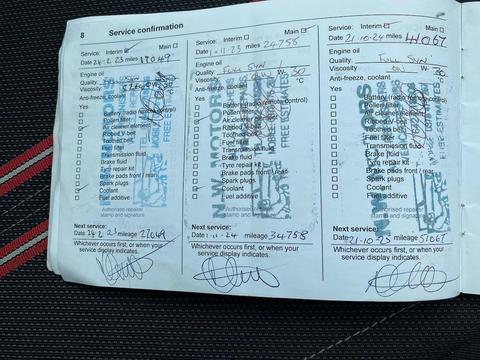 8 Service confirmation
Service: Interim Main
Date 24.2.23 miles 17049
Engine oil
Quality
Viscosity W-
Anti-freeze, coolant
Yes
Battery (radio remote control)
Pollen filter
Air cleaner element
Ribbed V-belt
Toothed belt
Transmission fluid
Brake fluid
Tyre repair kit
Brake pads front / rear
Spark plugs
Coolant
Fuel additive
Authorised repairer
stamp and signature
Next service:
Date mileage 27049
Whichever occurs first, or when your
service display indicates.
Service: Interim Main
Date 1.11.23 miles 24758
Engine oil
Quality FULL SYN
Viscosity W- 30
Anti-freeze, coolant °C
Yes
Battery (radio remote control)
Pollen filter
Air cleaner element
Ribbed V-belt
Toothed belt
Fuel filter
Transmission fluid
Brake fluid
Tyre repair kit
Brake pads front / rear
Spark plugs
Coolant
Fuel additive
N.W MOTORS
FREE ESTIMATES
Authorised repairer
stamp and signature
Next service:
Date 1.11.24 mileage 34758
Whichever occurs first, or when your
service display indicates.
Service: Interim Main
Date 21.10.24 miles 41067
Engine oil
Quality FULL SYN
Viscosity W- 30
Anti-freeze, coolant °C
Yes
Battery (radio remote control)
Pollen filter
Air cleaner element
Ribbed V-belt
Toothed belt
Fuel filter
Transmission fluid
Brake fluid
Tyre repair kit
Brake pads front / rear
Spark plugs
Coolant
Fuel additive
Authorised repairer
stamp and signature
Next service:
Date 21.10.25 mileage 51067
Whichever occurs first, or when your
service display indicates.